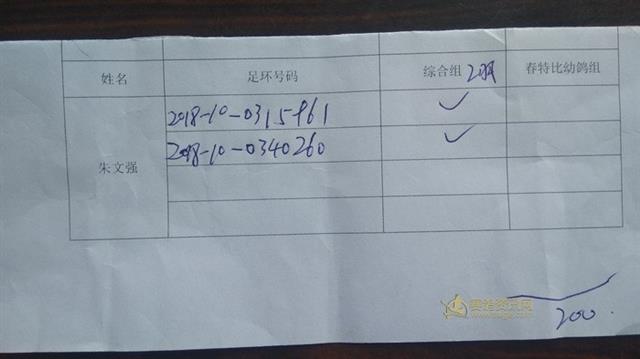 姓名 足环号码 综合组 2羽 春特比幼鸽组
2018-10-0315961 ✓
朱文强 2018-10-0340260 ✓
200.